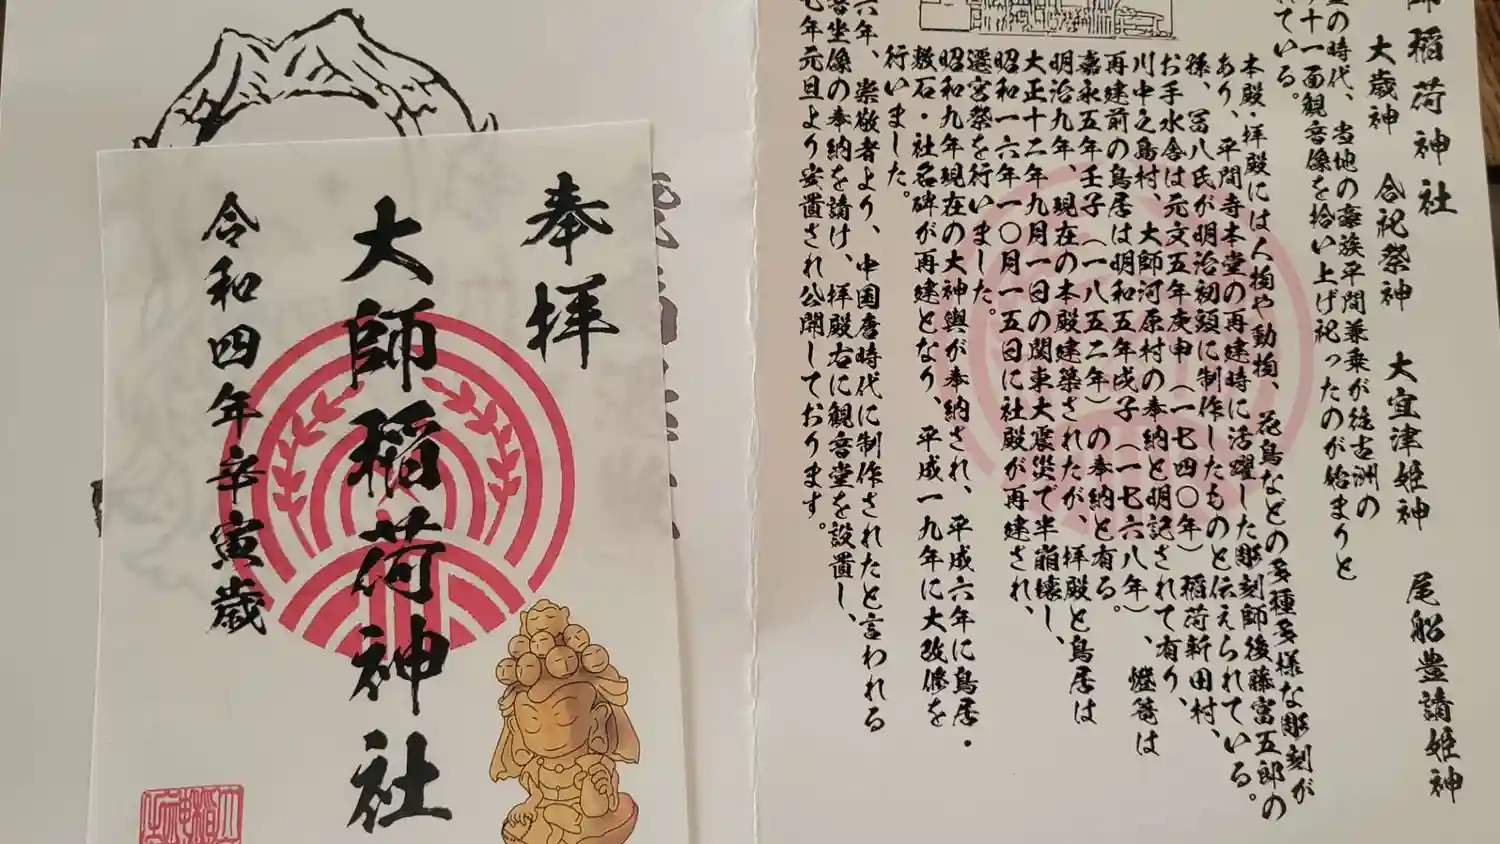 師稲荷神社
大歳神 合祀祭神 大宜津姫神 尾船豊請姫神
の時代、当地の豪族平間兼乗が往古洲の
十一面観音像を拾い上げ祀ったのが始まりと
ている。
本殿・拝殿には人物や動物、花鳥などの多種多様な彫刻が
あり、平間寺本堂の再建時に活躍した彫刻師後藤富五郎の
孫、冨八氏が明治初頭に制作したものと伝えられている。
お手水舎は元文五年庚申（一七四〇年）稲荷新田村、
川中之島村、大師河原村の奉納と明記されて有り、燈篭は
再建前の鳥居は明和五年戌子（一七六八年）、
嘉永五年壬子（一八五二年）の奉納と有る。
明治九年、現在の本殿建築されたが、拝殿と鳥居は
大正十二年九月一日の関東大震災で半崩壊し、
昭和一六年一〇月一五日に社殿が再建され、
遷宮祭を行いました。
昭和九年現在の大神輿が奉納され、平成六年に鳥居・
敷石・社名碑が再建となり、平成一九年に大改修を
行いました。
六年、崇敬者より、中国唐時代に制作されたと言われる
音坐像の奉納を請け、拝殿右に観音堂を設置し、
七年元旦より安置され公開しております。
奉拝
大師稲荷神社
令和四年辛寅歳